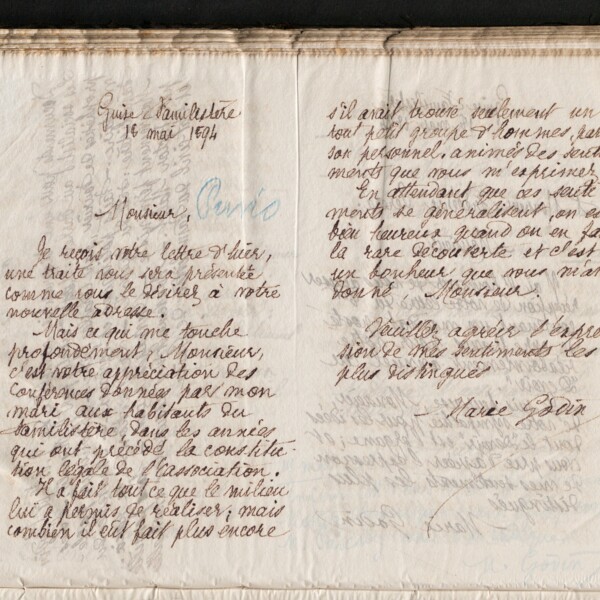 Guise Familistère
16 mai 1894
Monsieur,
Je reçois votre lettre d'hier,
une traite vous sera présentée
comme vous le désirez à votre
nouvelle adresse.
Mais ce qui me touche
profondément, Monsieur,
c'est votre appréciation des
Conférences données par mon
mari aux habitants du
Familistère, dans les années
qui ont précédé la constitu-
tion légale de l'association.
Il a fait tout ce que le milieu
lui a permis de réaliser; mais
combien il eût fait plus encore
s'il avait trouvé seulement un
tout petit groupe d'hommes, par
son personnel, animés des senti
ments que vous m'exprimez
En attendant que ces senti
ments se généralisent, on es
bien heureux quand on en fa
la rare découverte et c'est
un bonheur que vous m'a
donné Monsieur.
Veuillez agréer l'expres
sion de mes sentiments les
plus distingués
Marie Godin